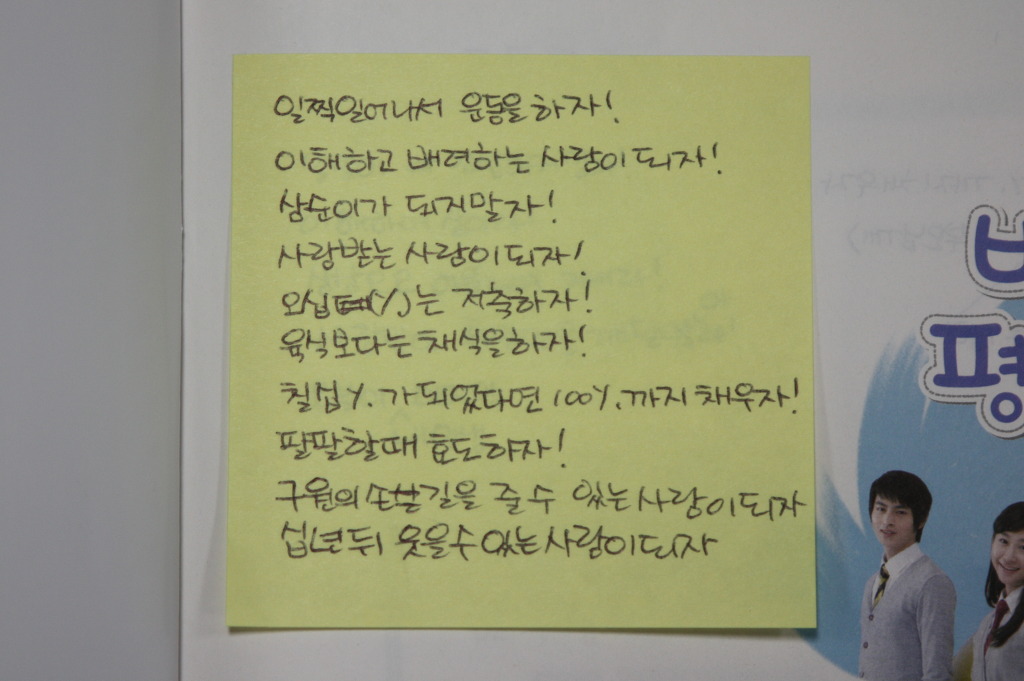 일찍일어나서 운동을하자!
이해하고 배려하는 사람이되자!
삼순이가 되지말자!
사랑받는 사람이되자!
오십(%)는 저축하자!
육식보다는채식을하자!
칠십%.가되었다면 100%.까지채우자!
팔팔할때 효도하자!
구원의 손길을 줄수 있는사람이되자
십년뒤 웃을수있는사람이되자
평